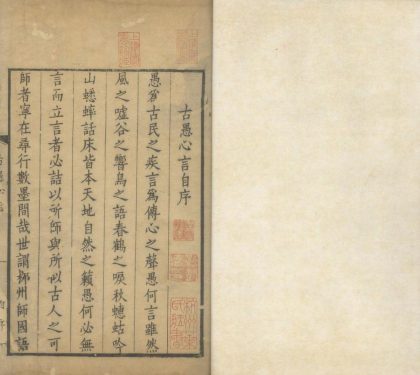 古愚心言自序
愚爲古民之疾言爲傳心之聲愚何言雖然
風之噓谷之響鳥之語春鶴之唳秋蟪蛄吟
山蟋蟀話床皆本天地自然之籟愚何必無
言而立言者必詰以所師與所似古人之可
師者寧在尋行數墨間哉世謂柳州師國語